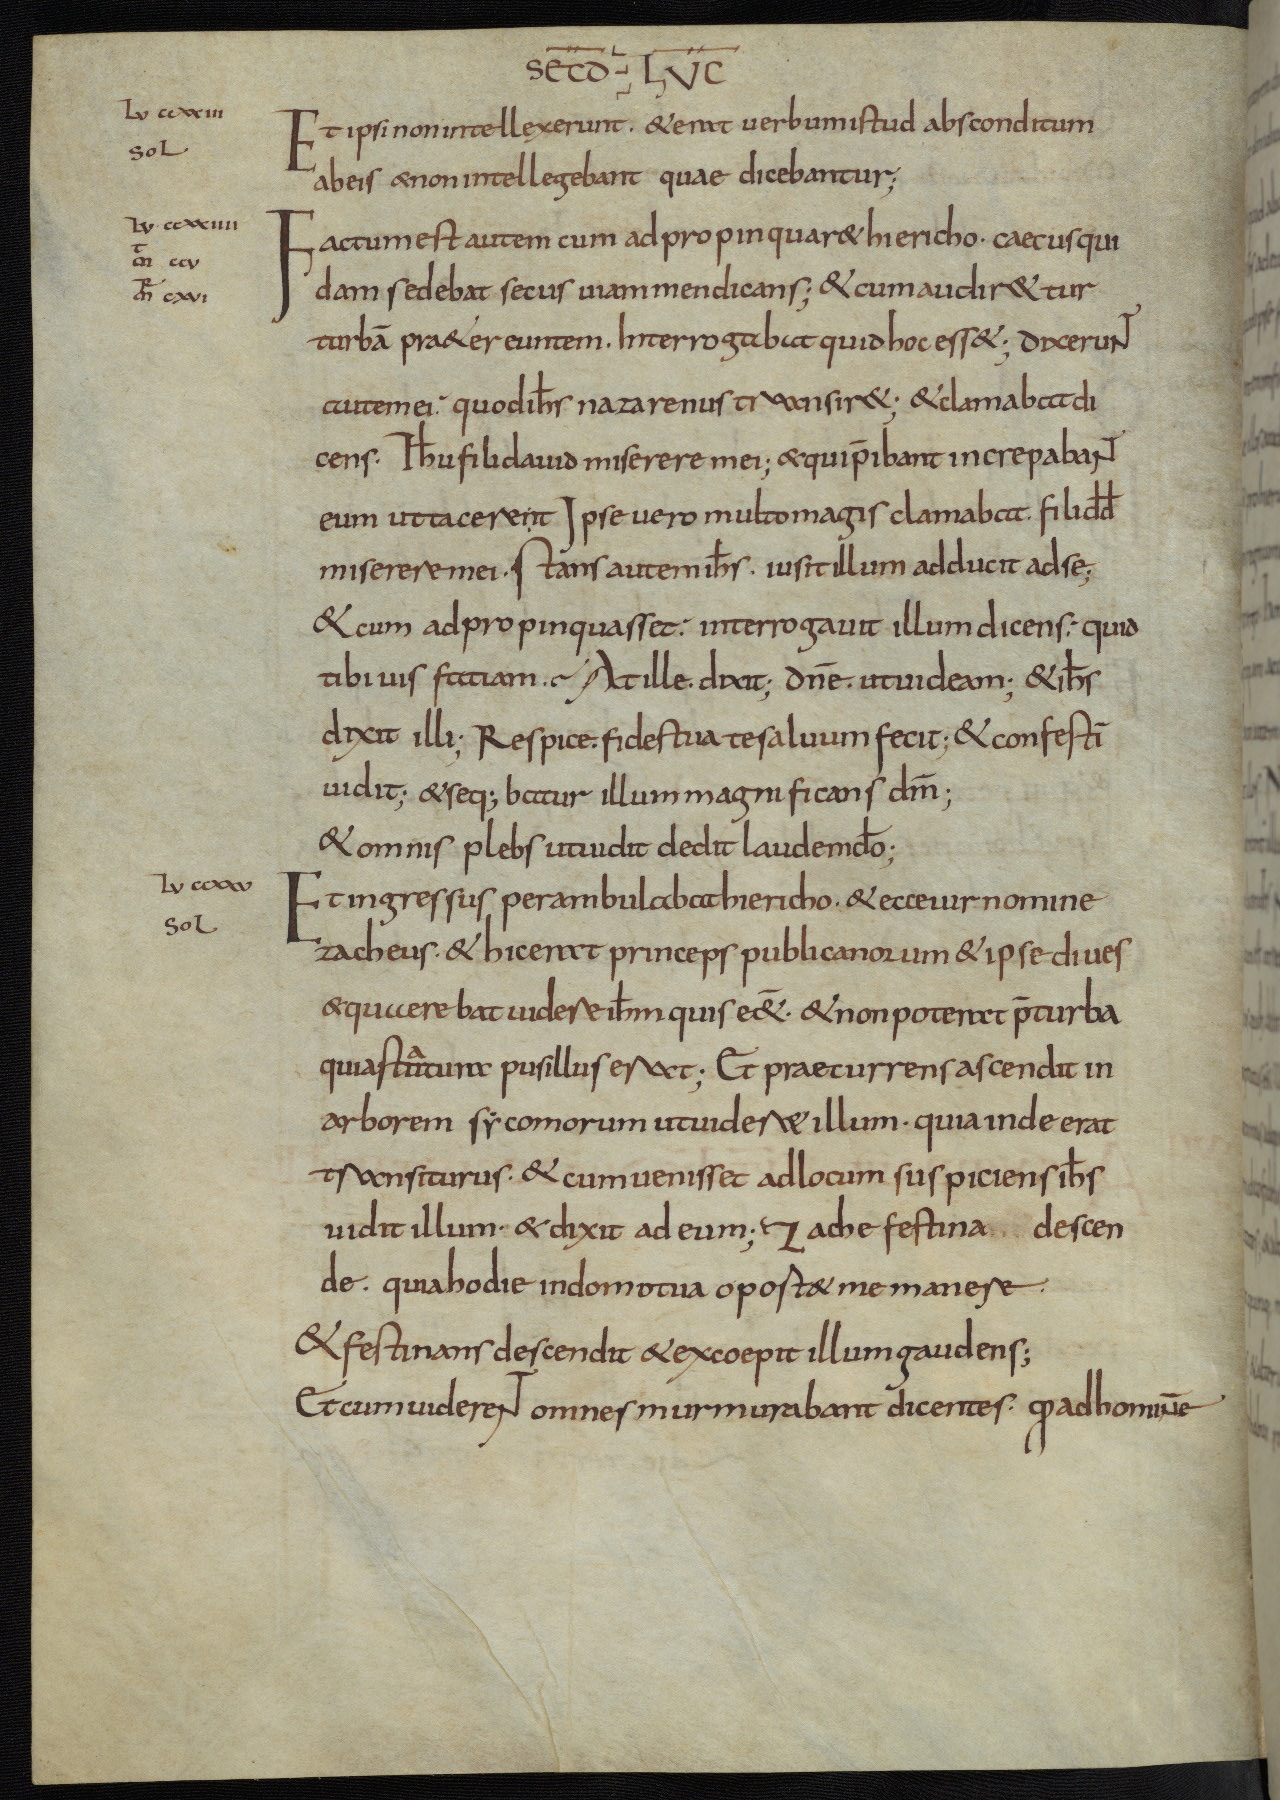 SECD LUC
Lu ccxxiii
Sol
Et ipsi non intellexerunt. & erat uerbum istud absconditum
ab eis & non intellegebant quae dicebantur;
Lu ccxxiiii
mt ccv
mr cxvi
Factum est autem cum adpropinquar& hiericho. caecus qui
dam sedebat secus uiam mendicans; & cum audir& tur
turbā pra&ereuntem. Interrogabat quid hoc ess&; dixeruNT
autem ei. quod ih̄s nazarenus transir&; & clamabat di
cens. Ih̄u fili dauid miserere mei; & qui p̄ibant increpabaNT
eum ut tacerent Ipse uero multo magis clamabat. fili dd̄
miserere mei. Stans autem ih̄s. iusit illum adducit ad se;
& cum adpropinquasset. interrogauit illum dicens. quid
tibi uis fatiam. At ille. dixit; dn̄e. ut uideam; & ih̄s
dixit illi; Respice. fides tua te saluum fecit; & confestī
uidit; & seq; batur illum magnificans dm̄;
& omnis plebs ut uidit dedit laudem dō;
Lu ccxxv
Sol
Et ingressus perambulabat hiericho. & ecce uir nomine
zacheus. & hic erat princeps publicanorum & ipse diues
& quaerebat uidere ih̄m quis eē&. & non poterat p̄ turba
quia statura pusillus erat; Et praecurrens ascendit in
arborem sẏcomorum ut uider& illum. quia inde erat
transiturus. & cum uenisset ad locum suspiciens ih̄s
uidit illum. & dixit ad eum; Zache festina descen
de. quia hodie in domo tua oport& me manere.
& festinans descendit & excoepit illum gaudens;
Et cum uidereNT omnes murmurabant dicentes. qđ ad hominē